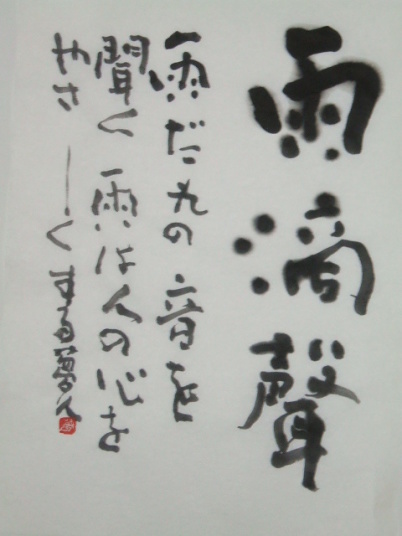 雨滴聲
雨だれの音を
聞く雨は人の心を
やさしくする